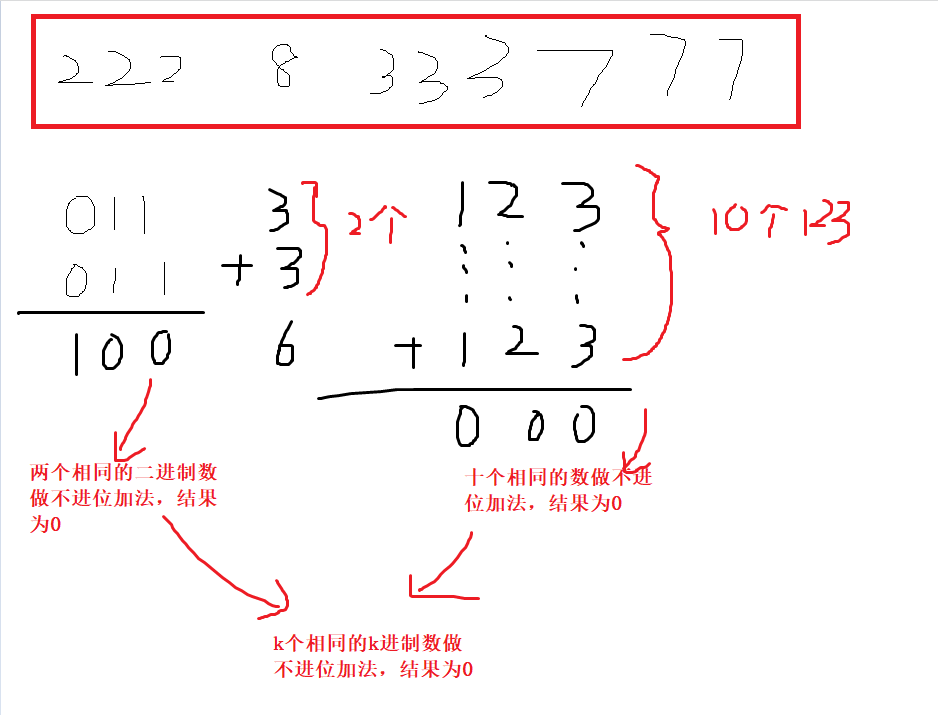 222 8 333 777
011 3 2个 123 10个123
⋮ ⋮ ⋮
011 +3 +123
100 6 000
两个相同的二进制数
做不进位加法，结果
为0
十个相同的数做不进
位加法，结果为0
k个相同的k进制数做
不进位加法，结果为0